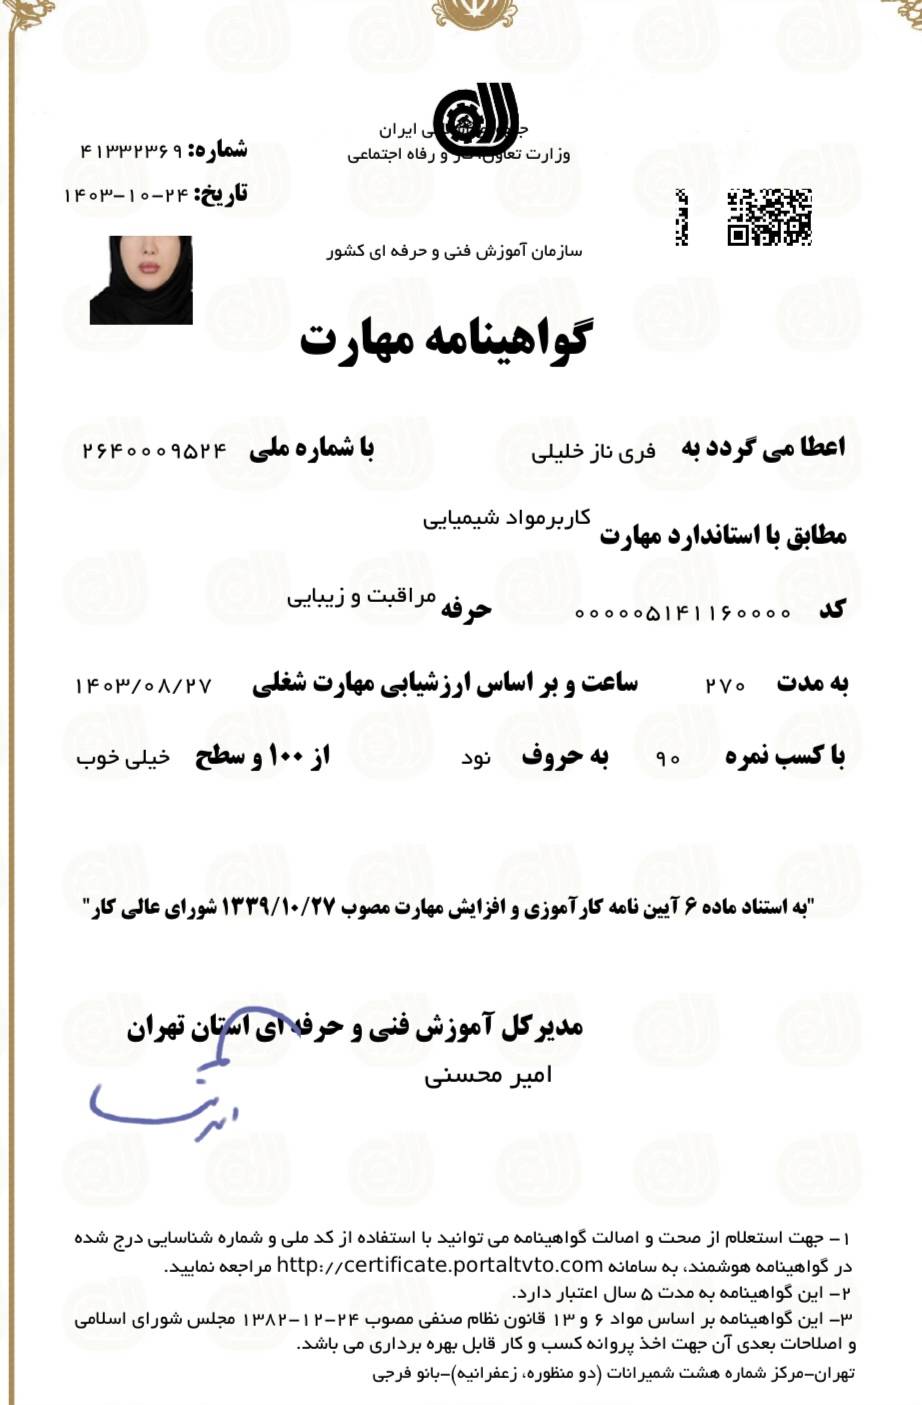 ایران
وزارت تعاون، کار و رفاه اجتماعی
شماره: ۴۱۳۳۲۳۶۹
تاریخ: ۱۴۰۳-۱۰-۲۴
سازمان آموزش فنی و حرفه ای کشور
گواهینامه مهارت
اعطا می گردد به فری ناز خلیلی با شماره ملی ۲۶۴۰۰۰۹۵۲۴
مطابق با استاندارد مهارت کاربرمواد شیمیایی
کد ۰۰۰۰۰۵۱۴۱۱۶۰۰۰۰ حرفه مراقبت و زیبایی
به مدت ۲۷۰ ساعت و بر اساس ارزشیابی مهارت شغلی ۱۴۰۳/۰۸/۲۷
با کسب نمره ۹۰ به حروف نود از ۱۰۰ و سطح خیلی خوب
"به استناد ماده ۶ آیین نامه کارآموزی و افزایش مهارت مصوب ۱۳۳۹/۱۰/۲۷ شورای عالی کار"
مدیرکل آموزش فنی و حرفه ای استان تهران
امیر محسنی
۱- جهت استعلام از صحت و اصالت گواهینامه می توانید با استفاده از کد ملی و شماره شناسایی درج شده
در گواهینامه هوشمند، به سامانه http://certificate.portaltvto.com مراجعه نمایید.
۲- این گواهینامه به مدت ۵ سال اعتبار دارد.
۳- این گواهینامه بر اساس مواد ۶ و ۱۳ قانون نظام صنفی مصوب ۲۴-۱۲-۱۳۸۲ مجلس شورای اسلامی
و اصلاحات بعدی آن جهت اخذ پروانه کسب و کار قابل بهره برداری می باشد.
تهران-مرکز شماره هشت شمیرانات (دو منظوره، زعفرانیه)-بانو فرجی